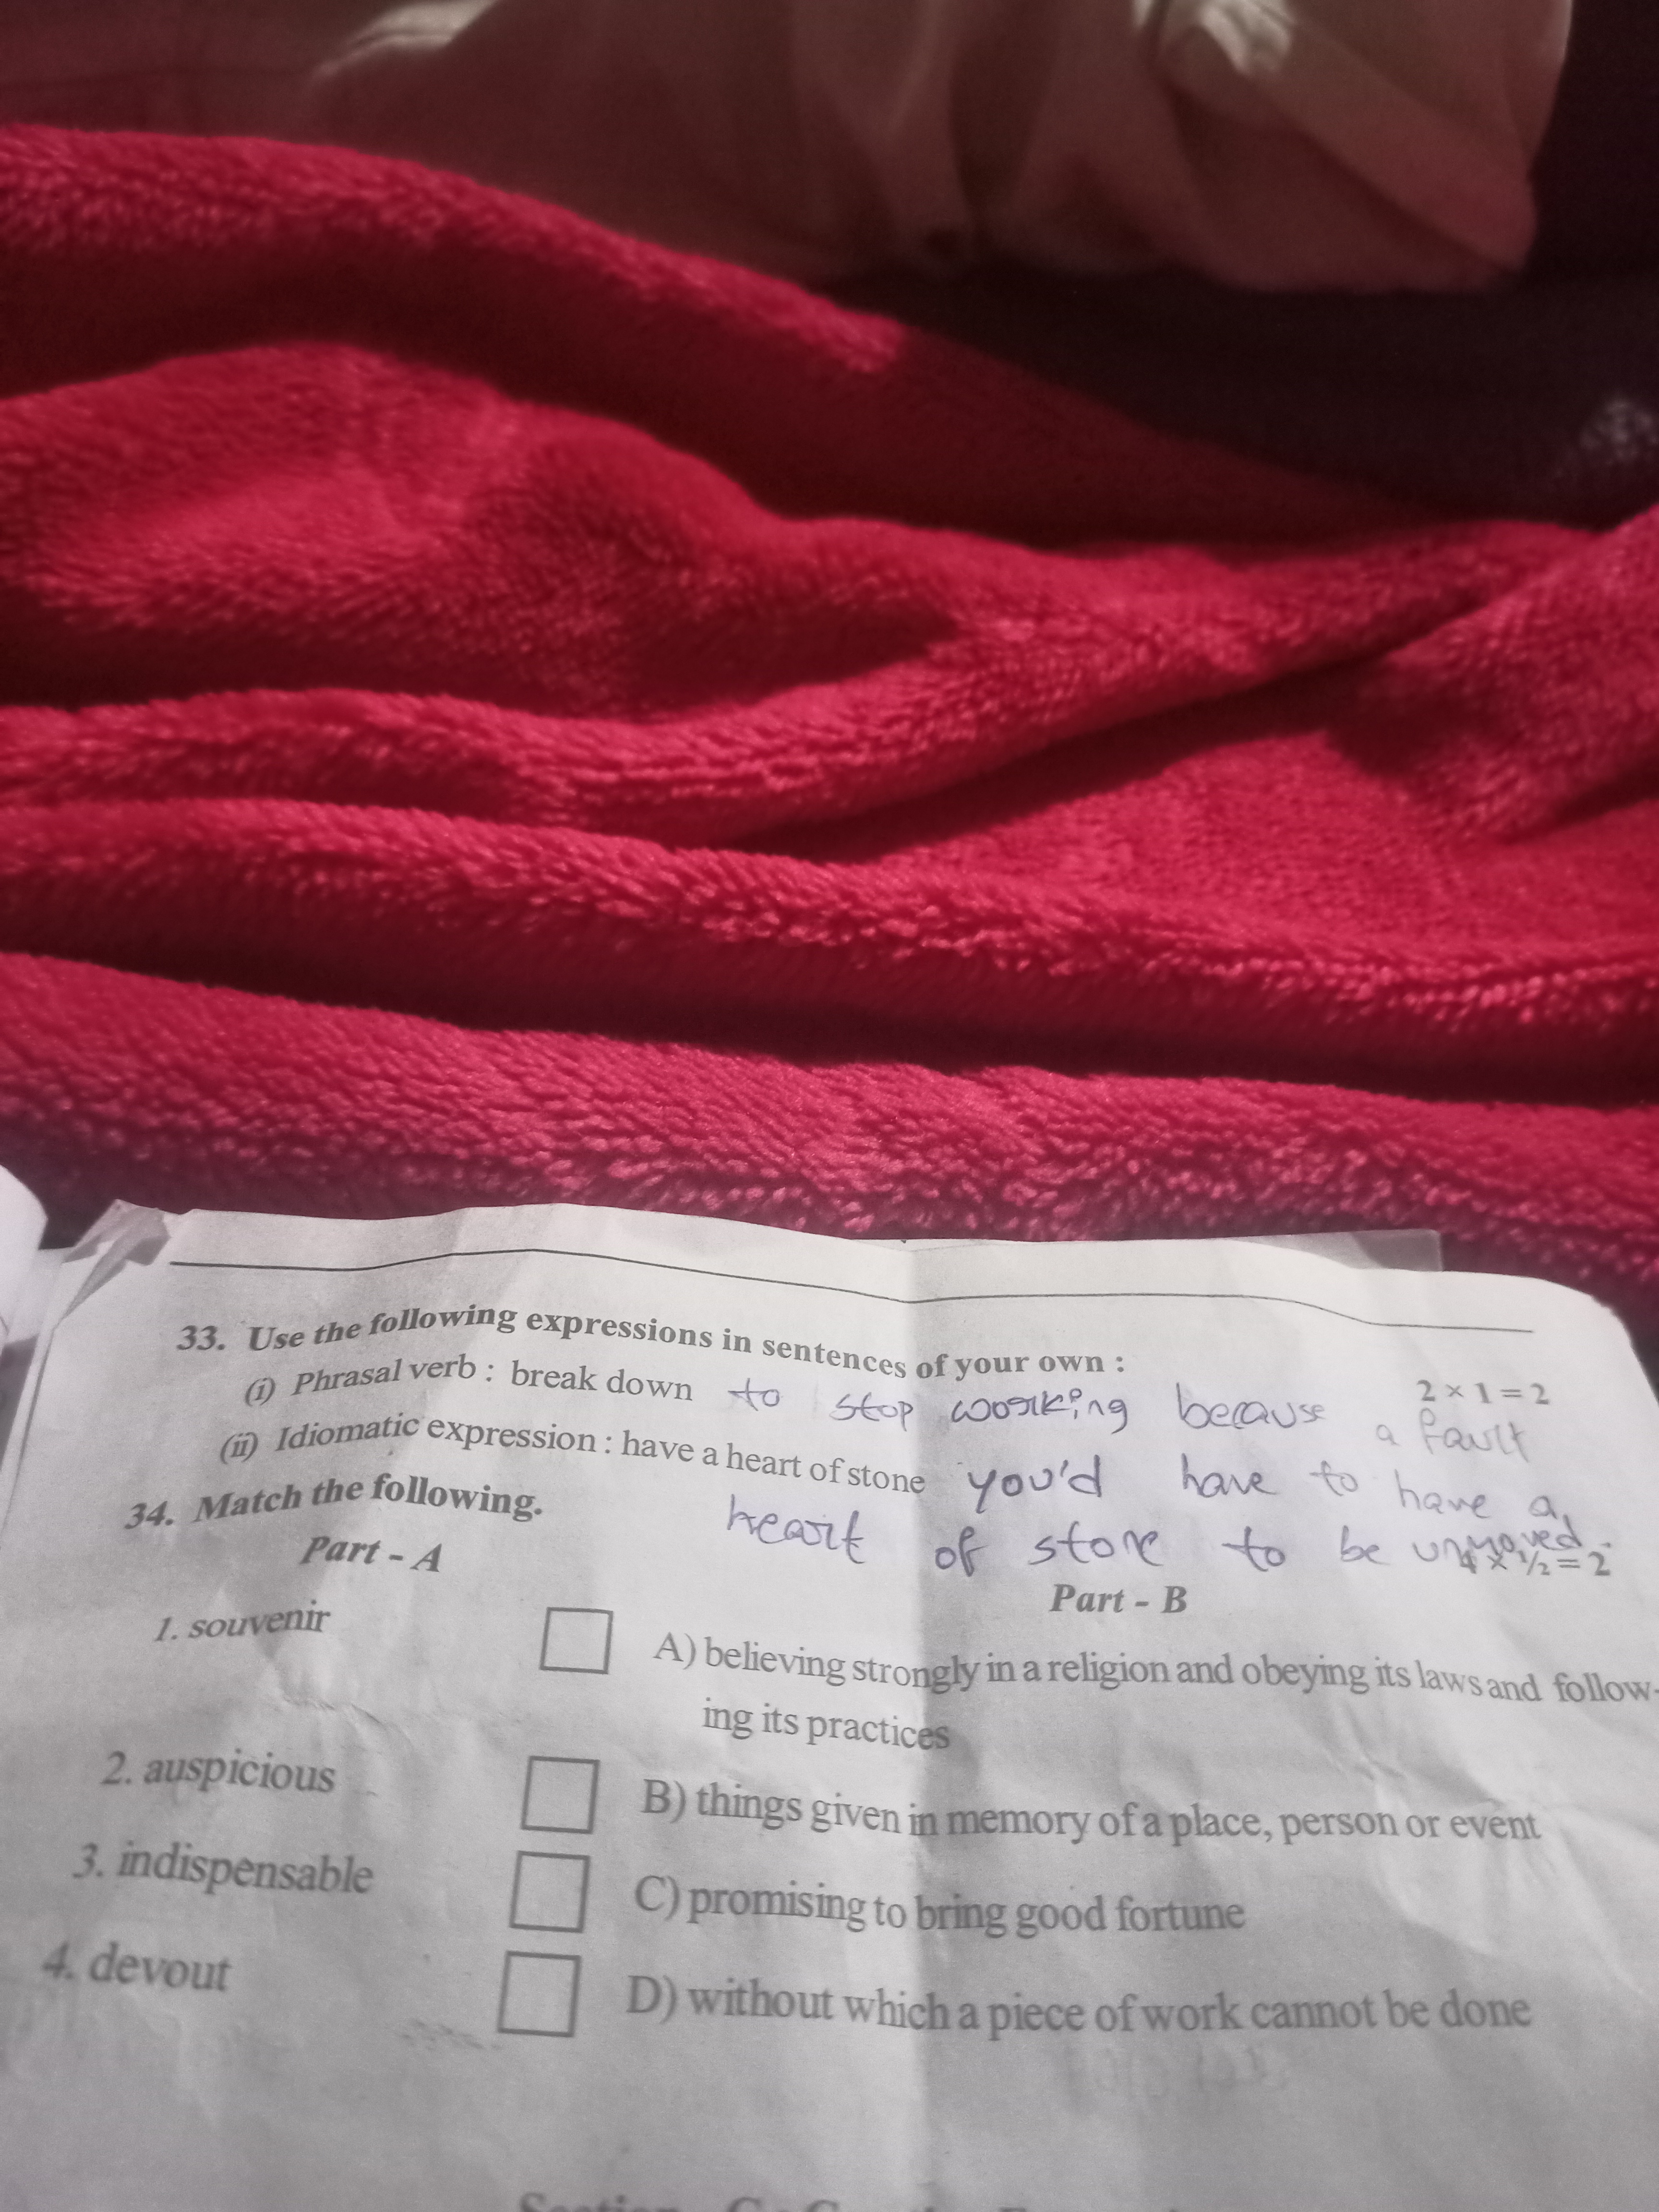 33. Use the following expressions in sentences of your own :
2 × 1 = 2
(i) Phrasal verb : break down to stop working because a fault
(ii) Idiomatic expression : have a heart of stone you'd have to have a
heart of stone to be unmoved.
34. Match the following.
4 × ½ = 2
Part - A
Part - B
1. souvenir
A) believing strongly in a religion and obeying its laws and follow-
ing its practices
2. auspicious
B) things given in memory of a place, person or event
3. indispensable
C) promising to bring good fortune
4. devout
D) without which a piece of work cannot be done